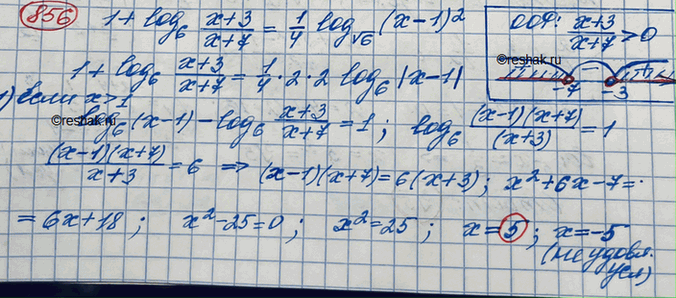 856 1+log₆ (x+3)/(x+7) = 1/4 log_√6 (x-1)²
ООФ: (x+3)/(x+7) > 0
+ - +
-7 -3
©reshak.ru
1+log₆ (x+3)/(x+7) = 1/4 · 2 · 2 log₆ |x-1|
1) если x>1
©reshak.ru
log₆ (x-1) - log₆ (x+3)/(x+7) = 1 ; log₆ (x-1)(x+7)/(x+3) = 1
(x-1)(x+7)/(x+3) = 6 ⇒ (x-1)(x+7) = 6(x+3) ; x²+6x-7=
= 6x+18 ; x²-25=0 ; x²=25 ; x=5 ; x=-5
(не удовл.
усл)